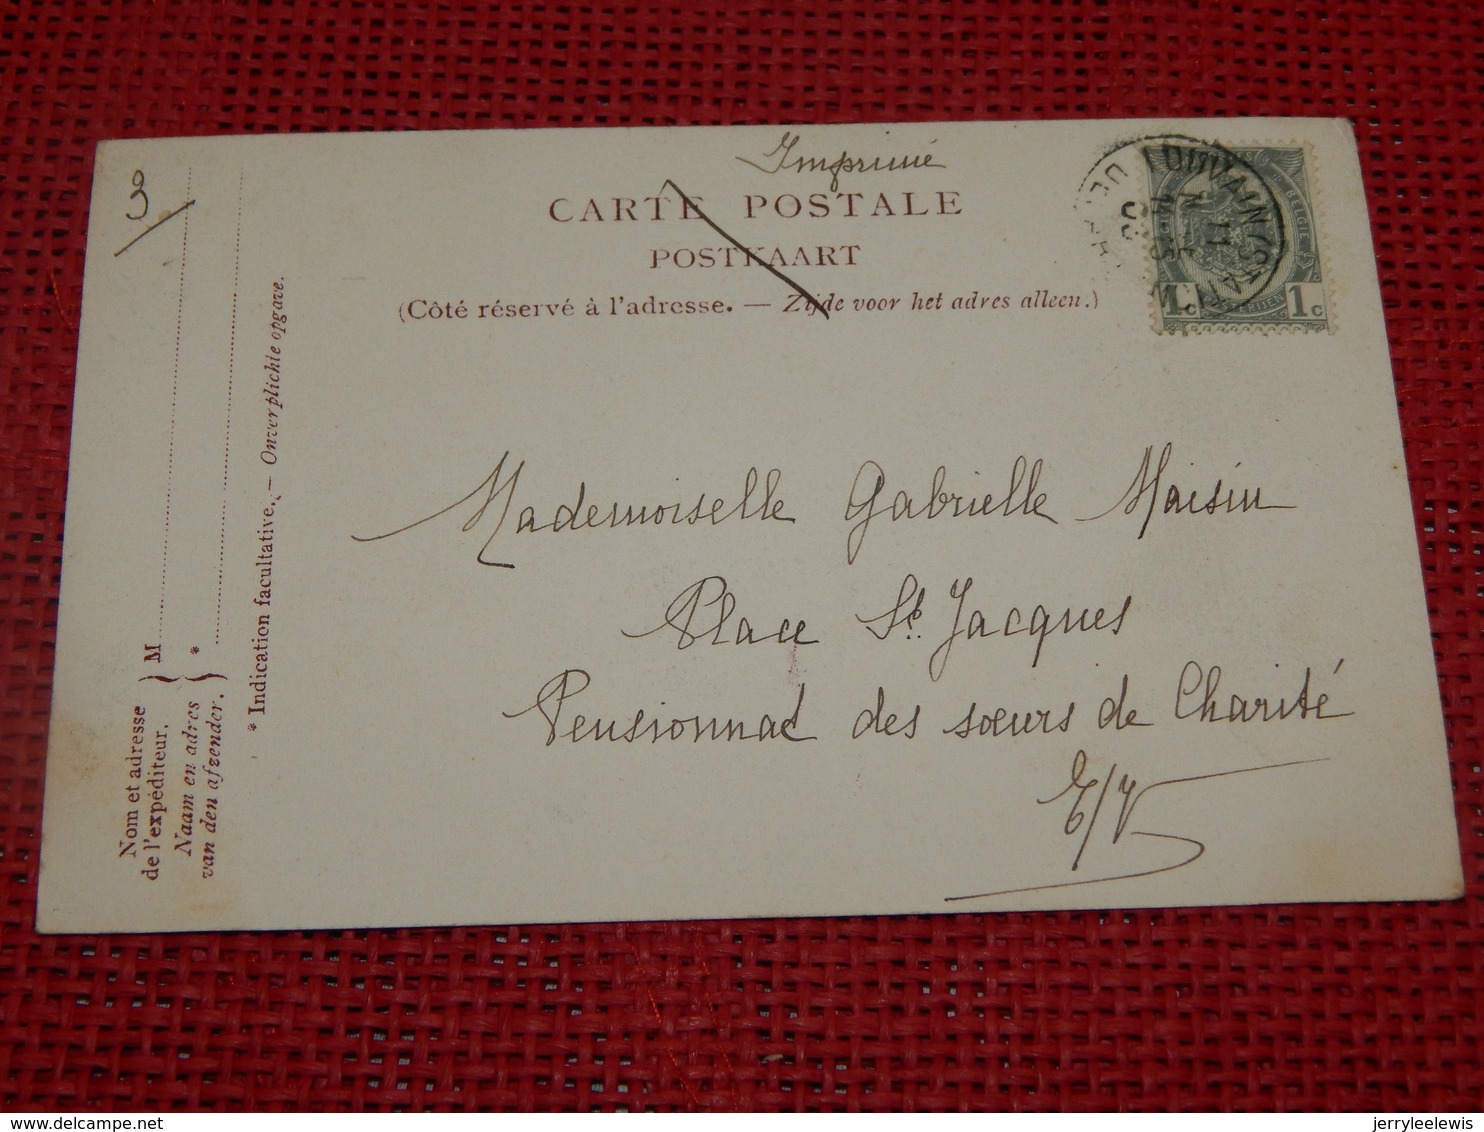 3
Imprimé
CARTE POSTALE
POSTKAART
(Côté réservé à l'adresse. — Zijde voor het adres alleen.)
LOUVAIN (STATION)
1c 1c
Mademoiselle Gabrielle Maisin
Place St. Jacques
Pensionnat des sœurs de Charité
E/V
Nom et adresse
de l'expéditeur.
Naam en adres
van den afzender.
M
*
* Indication facultative. — Onverplichte opgave.
jerryleelewis